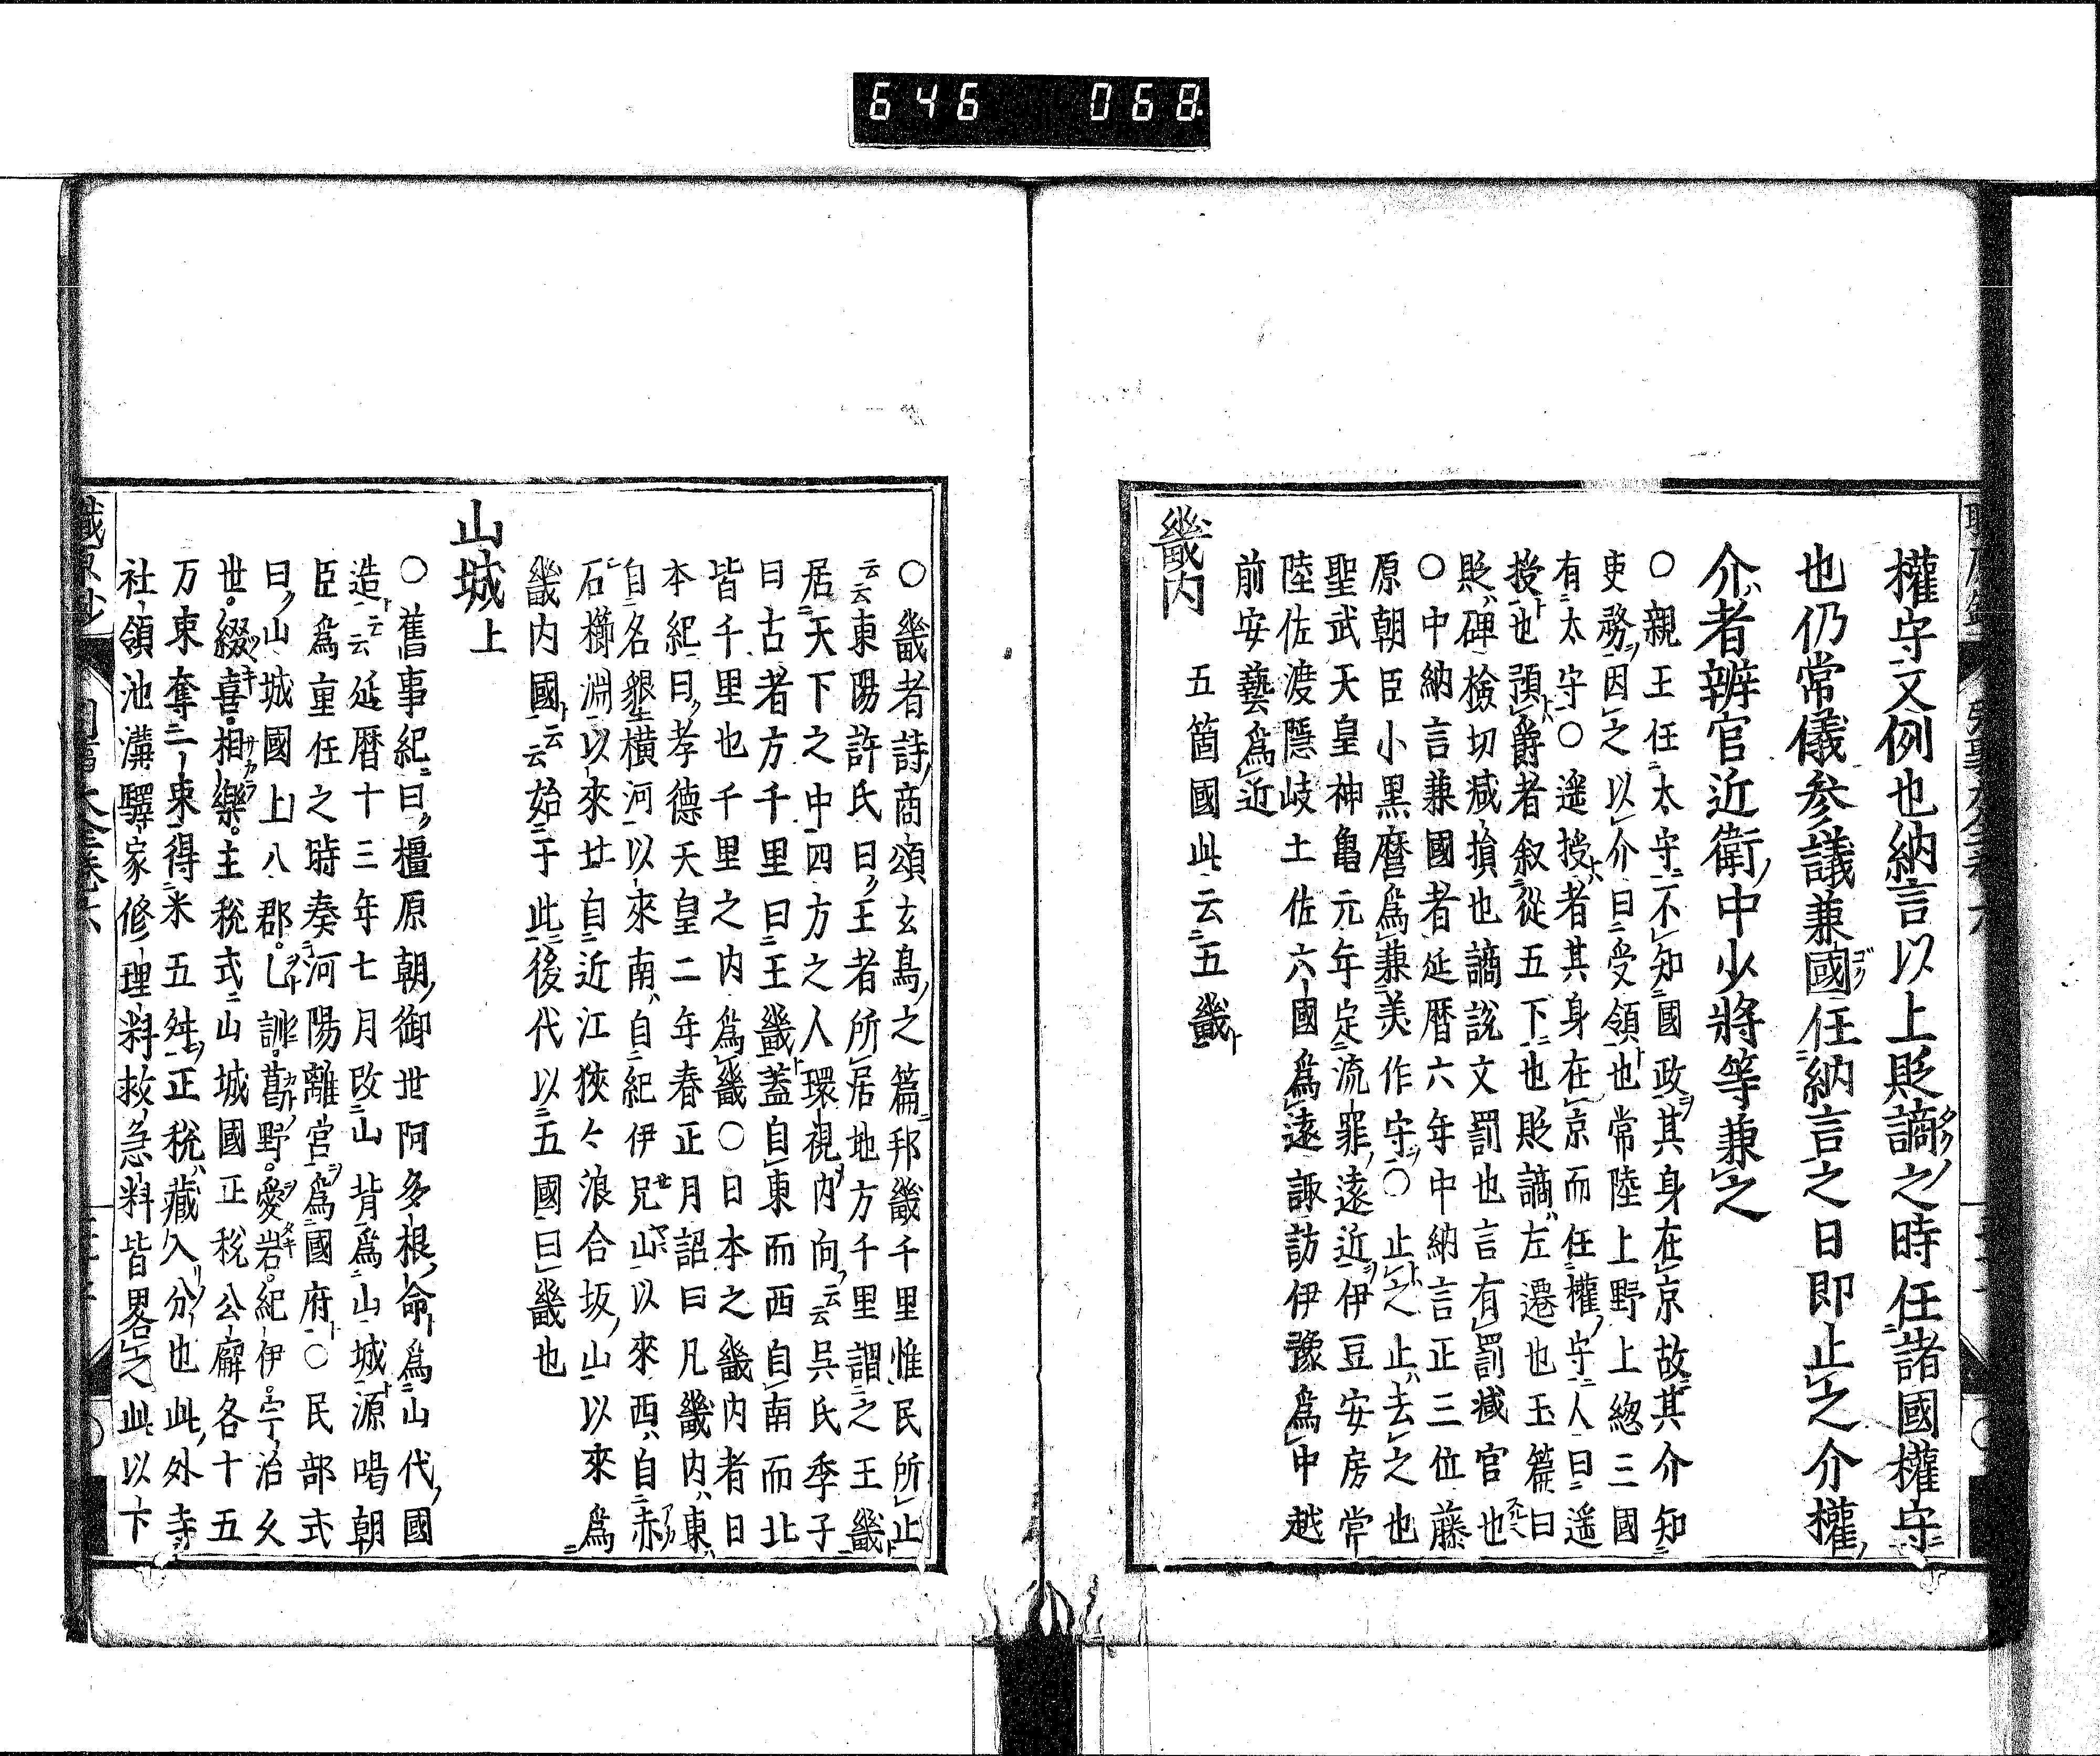 646 068
權守又例也納言以上貶謫之時任諸國權守
也仍常儀参議兼國任納言之日即止之介權
介者辨官近衛中少將等兼之
○親王任太守不知國政其身在京故其介知
吏務因之以介曰受領也常陸上野上総三國
有太守○遥授者其身在京而任權守人曰遥
授也預爵者叙從五下也貶謫左遷也玉篇曰
貶碑檢切减損也謫說文罰也言有罰减官也
○中納言兼國者延暦六年中納言正三位藤
原朝臣小黒麿爲兼美作守○止之止去之也
聖武天皇神亀元年定流罪遠近伊豆安房常
陸佐渡隱岐土佐六國爲遠諏訪伊豫爲中越
前安藝爲近
畿内 五箇國此云五畿
○畿者詩商頌玄鳥之篇邦畿千里惟民所止
云云東陽許氏曰王者所居地方千里謂之王畿
居天下之中四方之人環視内向云云呉氏季子
曰古者方千里曰王畿蓋自東而西自南而北
皆千里也千里之内爲畿○日本之畿内者日
本紀曰孝德天皇二年春正月詔曰凡畿内東
自名墾横河以來南自紀伊兄山以來西自赤
石櫛淵以來北自近江狹々浪合坂山以來爲
畿内國云云始于此後代以五國曰畿也
山城上
○舊事紀曰橿原朝御世阿多根命爲山代國
造云云延暦十三年七月改山背爲山城源喝朝
臣爲重任之時奏河陽離宮爲國府○民部式
曰山城國上八郡乙訓葛野愛宕紀伊宇治久
世綴喜相樂主税式山城國正税公廨各十五
万束奪二一束得米五舛正税藏入分也此外寺
社領池溝驛家修理料救急料皆畧之此以下